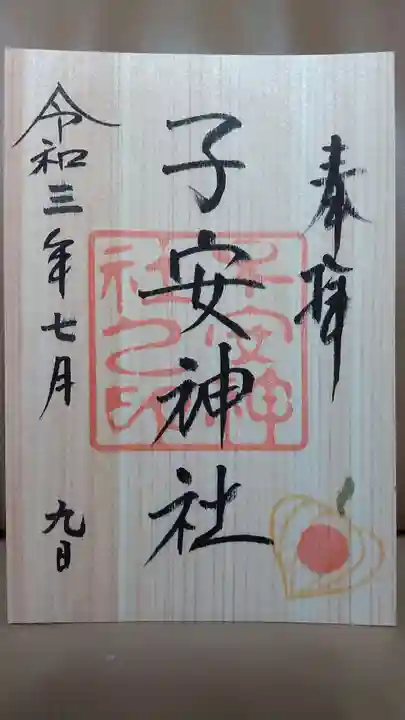 奉拝
子安神社
子安神社之印
令和三年七月 九日